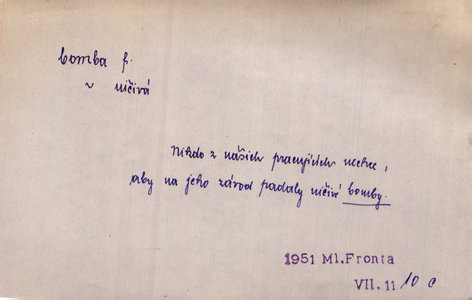 bomba f.
~ ničivá
Nikdo z našich pracujících nechce,
aby na jeho závod padaly ničivé bomby.
1951 Ml.Fronta
VII. 11 10 c